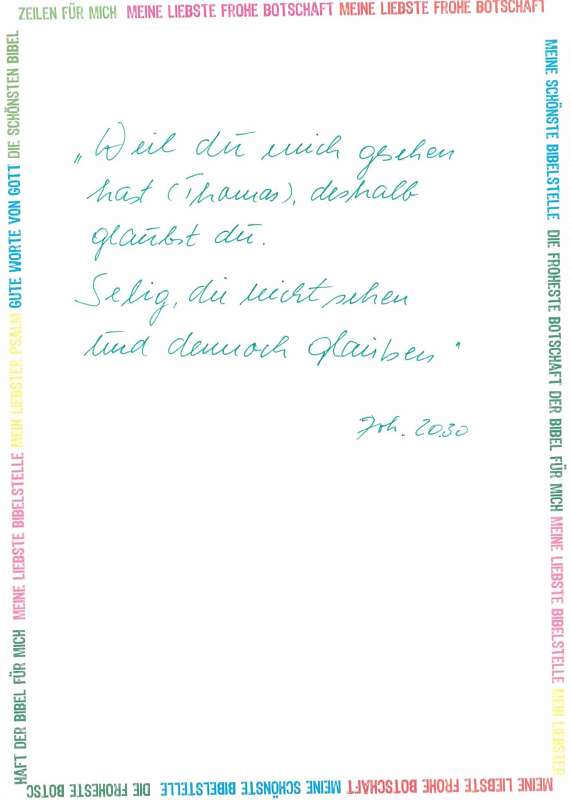 ZEILEN FÜR MICH MEINE LIEBSTE FROHE BOTSCHAFT MEINE LIEBSTE FROHE BOTSCHAFT
MEINE SCHÖNSTE BIBELSTELLE DIE FROHESTE BOTSCHAFT DER BIBEL FÜR MICH MEINE LIEBSTE BIBELSTELLE MEIN LIEBSTER
„Weil du mich gesehen
hast (Thomas), deshalb
glaubst du.
Selig, die nicht sehen
und dennoch glauben"
Joh. 20.30
MEINE LIEBSTE FROHE BOTSCHAFT MEINE SCHÖNSTE BIBELSTELLE DIE FROHESTE BOTSC
HAFT DER BIBEL FÜR MICH MEINE LIEBSTE BIBELSTELLE MEIN LIEBSTER PSALM GUTE WORTE VON GOTT DIE SCHÖNSTEN BIBEL